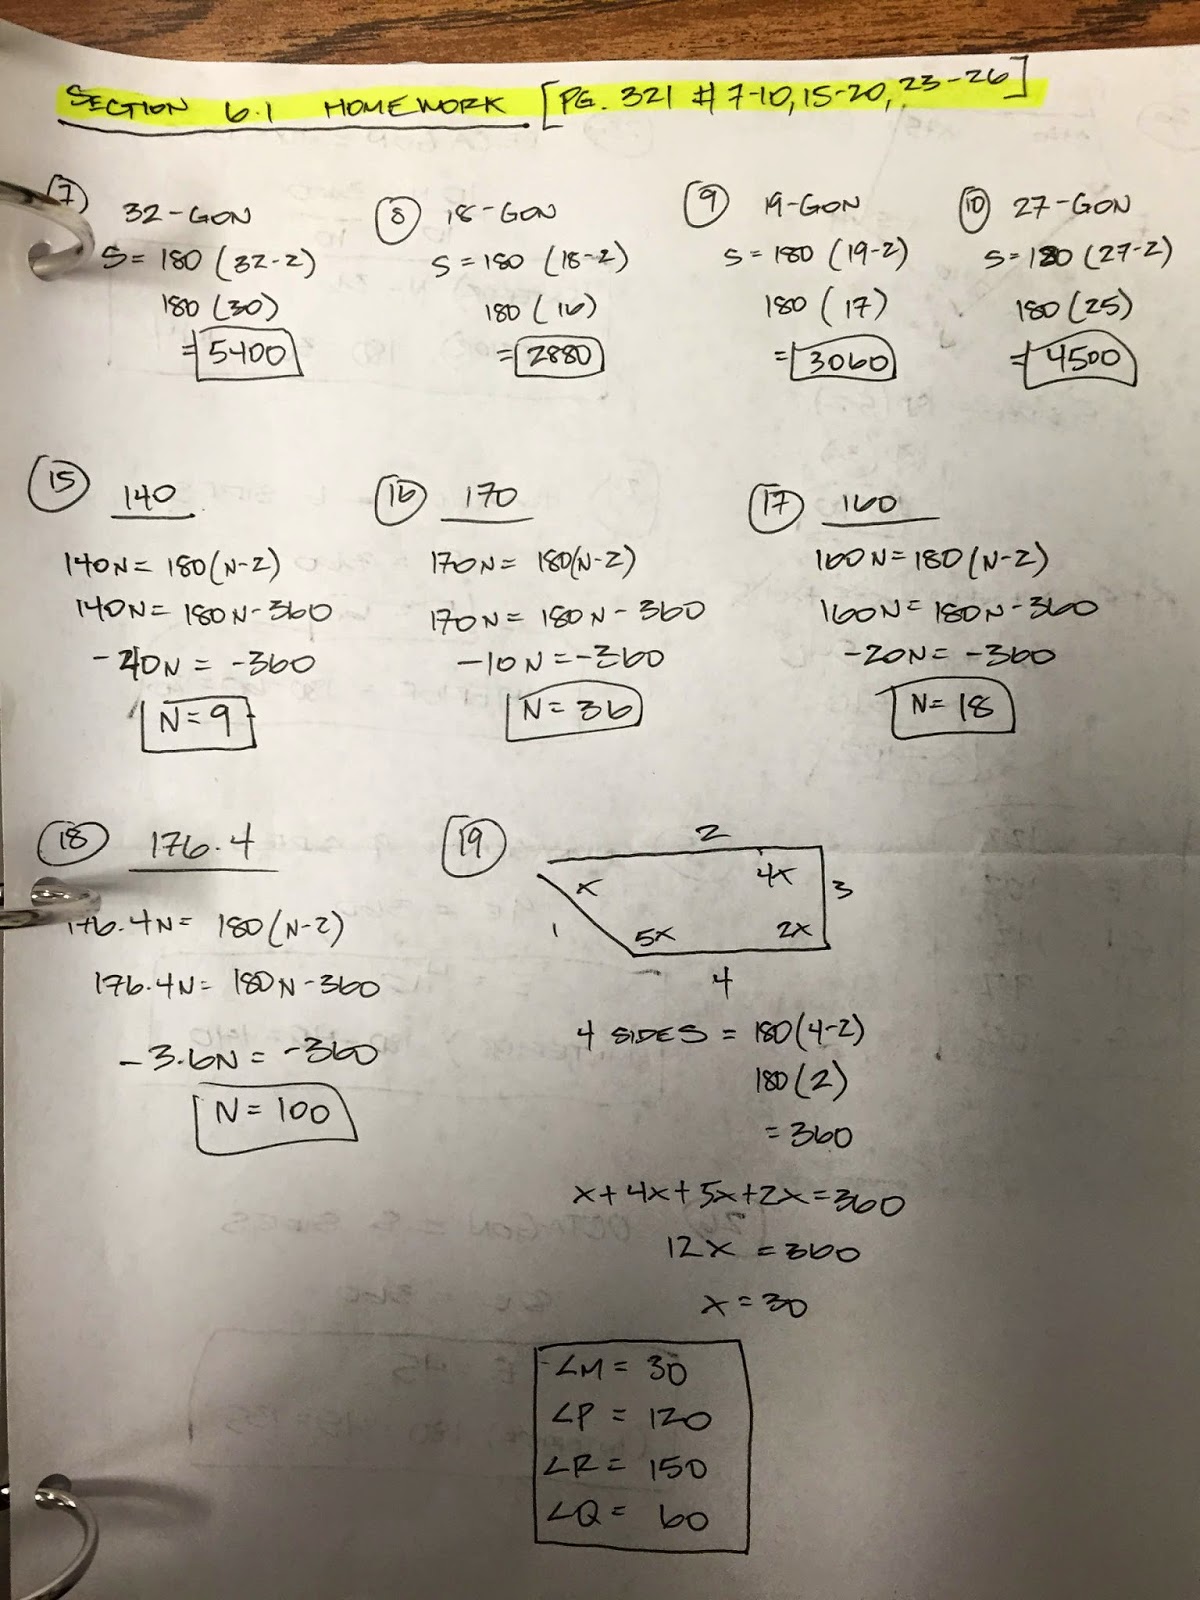 SECTION 6.1 HOMEWORK [PG. 321 # 7-10, 15-20, 23-26]
7 32-GON
S = 180 (32-2)
180 (30)
= 5400
8 18-GON
S = 180 (18-2)
180 (16)
= 2880
9 19-GON
S = 180 (19-2)
180 (17)
= 3060
10 27-GON
S = 180 (27-2)
180 (25)
= 4500
15 140
140N = 180(N-2)
140N = 180N-360
-40N = -360
N = 9
16 170
170N = 180(N-2)
170N = 180N - 360
-10N = -360
N = 36
17 160
160N = 180(N-2)
160N = 180N-360
-20N = -360
N = 18
18 176.4
176.4N = 180(N-2)
176.4N = 180N-360
-3.6N = -360
N = 100
19
2
x 4x 3
1 5x 2x
4
4 SIDES = 180(4-2)
180(2)
= 360
x + 4x + 5x + 2x = 360
12x = 360
x = 30
∠M = 30
∠P = 120
∠R = 150
∠Q = 60